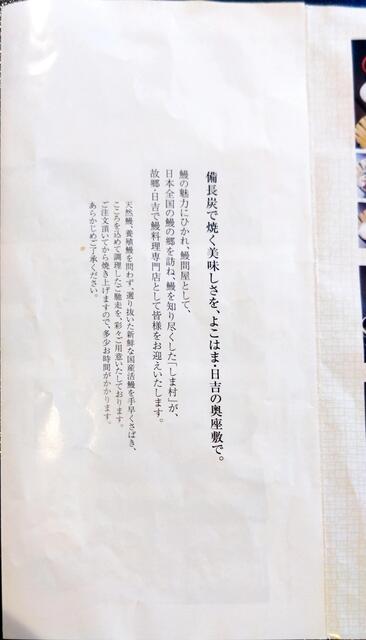 備長炭で焼く美味しさを、よこはま・日吉の奥座敷で。
鰻の魅力にひかれ、鰻問屋として、
日本全国の鰻の郷を訪ね、鰻を知り尽くした「しま村」が、
故郷・日吉で鰻料理専門店として皆様をお迎えいたします。
天然鰻、養殖鰻を問わず、選り抜いた新鮮な国産活鰻を手早くさばき、
こころを込めて調理したご馳走を、彩々ご用意いたしております。
ご注文頂いてから焼き上げますので、多少お時間がかかります。
あらかじめご了承ください。